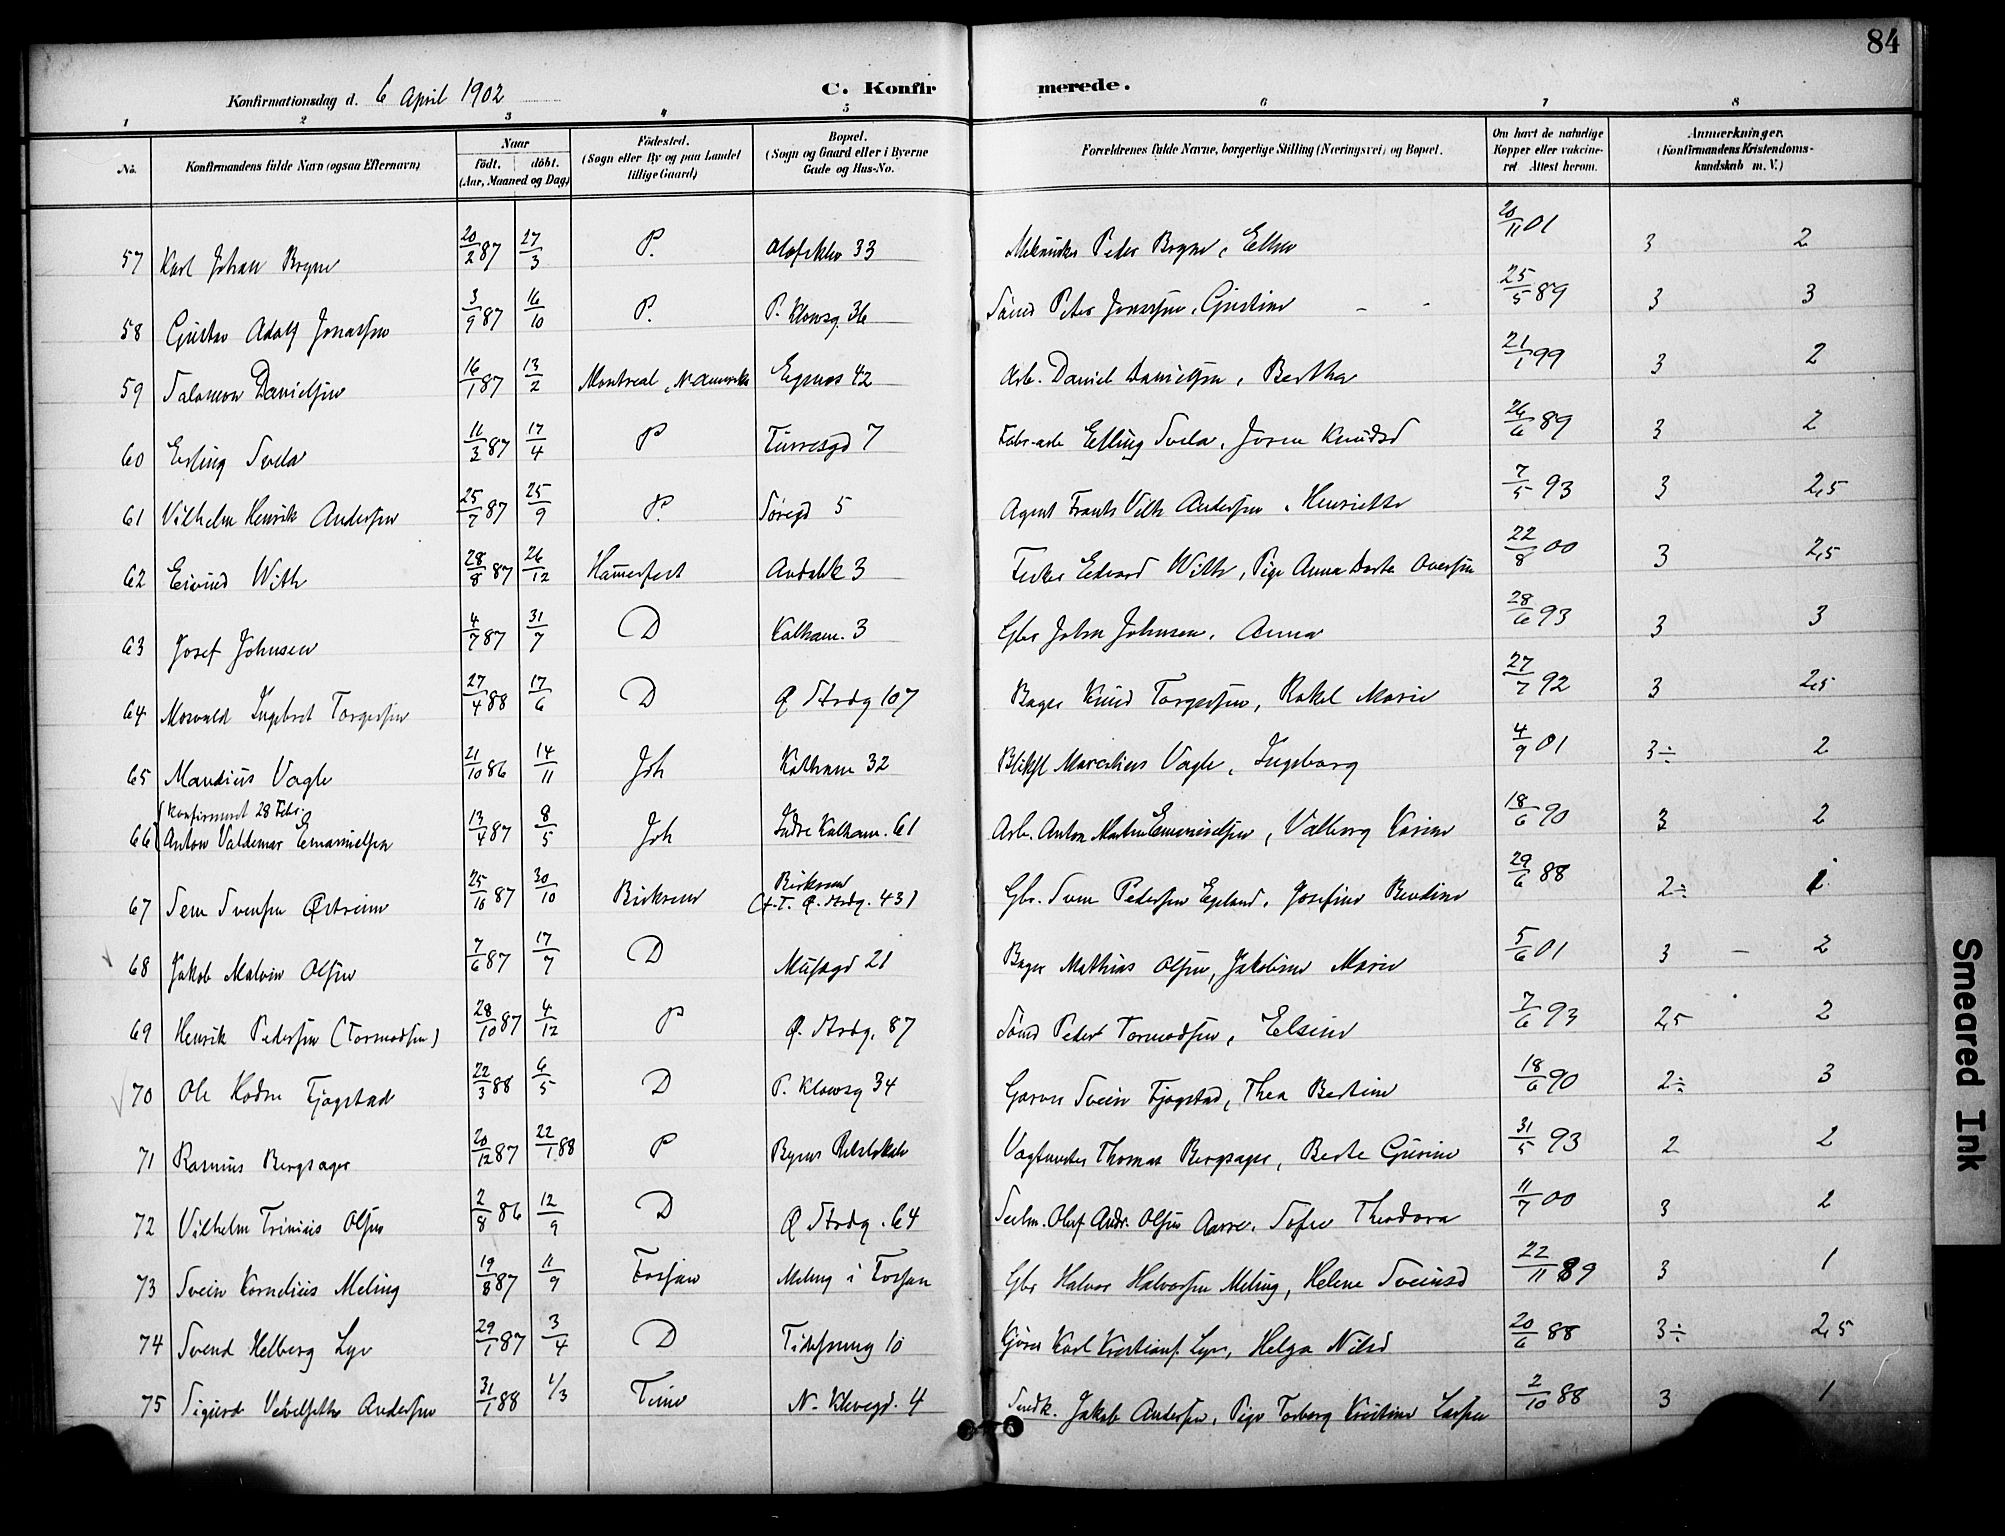 84
Konfirmationsdag d. 6 April 1902 C. Konfir merede.
1 2 3 4 5 6 7 8
No. Konfirmandens fulde Navn (ogsaa Efternavn) Naar født. døbt. (Aar, Maaned og Dag) Fødested. (Sogn eller By og paa Landet tillige Gaard) Bopæl. (Sogn og Gaard eller i Byerne Gade og Hus-No. Forældrenes fulde Navne, borgerlige Stilling (Næringsvei) og Bopæl. Om havt de naturlige Kopper eller vakcineret Attest herom. Anmærkninger. (Konfirmandens Kristendomskundskab m. V.)
57 Karl Johan Bryne 20/2 87 27/3 P. 33 Peder Bryne, 20/11 01 3 2
58 Gustav Adolf Jonassen 3/9 87 16/10 P. P. Klowsg. 36 Peter Jonassen, Gustine 25/5 89 3 3
59 Salomon Danielsen 16/1 87 13/2 Montreal, N. Amerika Egenes 42 Arb. Daniel Danielsen, Bertha 21/1 99 3 2
60 Erling Svela 11/3 87 17/4 P 7 Elling Svela, Knudsd 26/6 89 3 2
61 Vilhelm Henrik Andersen 25/7 87 25/9 P. Søregd 5 Agent Frants Vilh Andersen, Henriette 7/5 93 3 2,5
62 Eivind With 28/8 87 26/12 Hammerfest 3 Edvard With, Pige Anna Oversen 22/8 00 3 2,5
63 Josef Johnsen 4/7 87 31/7 D Kalham. 3 Gbr John Johnsen, Anna 28/6 93 3 3
64 Morvald Ingebret Torgersen 27/4 88 17/6 D Ø Strdg 107 Bager Knud Torgersen, Rakel Marie 27/7 92 3 2,5
65 Mandius Vagle 21/10 86 14/11 Joh Kalham 32 Marcelius Vagle, Ingeborg 4/9 01 3÷ 2
(Konfirmeret 28 Febr.)
66 Anton Valdemar Emanuelsen 13/4 87 8/5 Joh Indre Kalham. 61 Arb. Anton Martin Emanuelsen, Valborg Karine 18/6 90 3 2
67 Svensen Østreim 25/10 87 30/10 Birkrem Birkrem (f.T. Ø. Strdg. 43) Gbr. Sven Pedersen Egeland, Josefine Bendine 29/6 88 2÷ 1
68 Jakob Malvin Olsen 7/6 87 17/7 D Musægd 21 Bager Mathias Olsen, Jakobine Marie 5/6 01 3 – 2
69 Henrik Pedersen (Tormodsen) 28/10 87 4/12 P Ø. Strdg. 87 Peder Tormodsen, Elsine 7/6 93 2,5 2
70 Ole Hodne Fjogstad 22/3 88 6/5 D P. Klowsg 34 Garver Svein Fjogstad, Thea Bertine 18/6 90 2÷ 3
71 Rasmus Bergsager 20/12 87 22/1 88 P Byens Thomas Bergsager, Berte Gurine 31/5 93 2 2
72 Vilhelm Trinius Olsen 2/8 86 12/9 D Ø Strdg. 64 Olaf Andr. Olsen Aarre, Sofie Theodora 11/7 00 3 2
73 Svein Kornelius Meling 19/8 87 11/9 Fossan Meling i Fossan Gbr Halvor Halvorsen Meling, Helene Sveinsd 22/11 89 3 1
74 Svend Helberg Lye 29/1 87 3/4 D 10 Karl Kristians. Lye, Helga Nilsd 20/6 88 3÷ 2,5
75 Sigurd Andersen 31/1 88 1/3 Time N. Klevegd. 4 Jakob Andersen, Pige Torborg Kristine Larsen 2/10 88 3 1
Smeared Ink